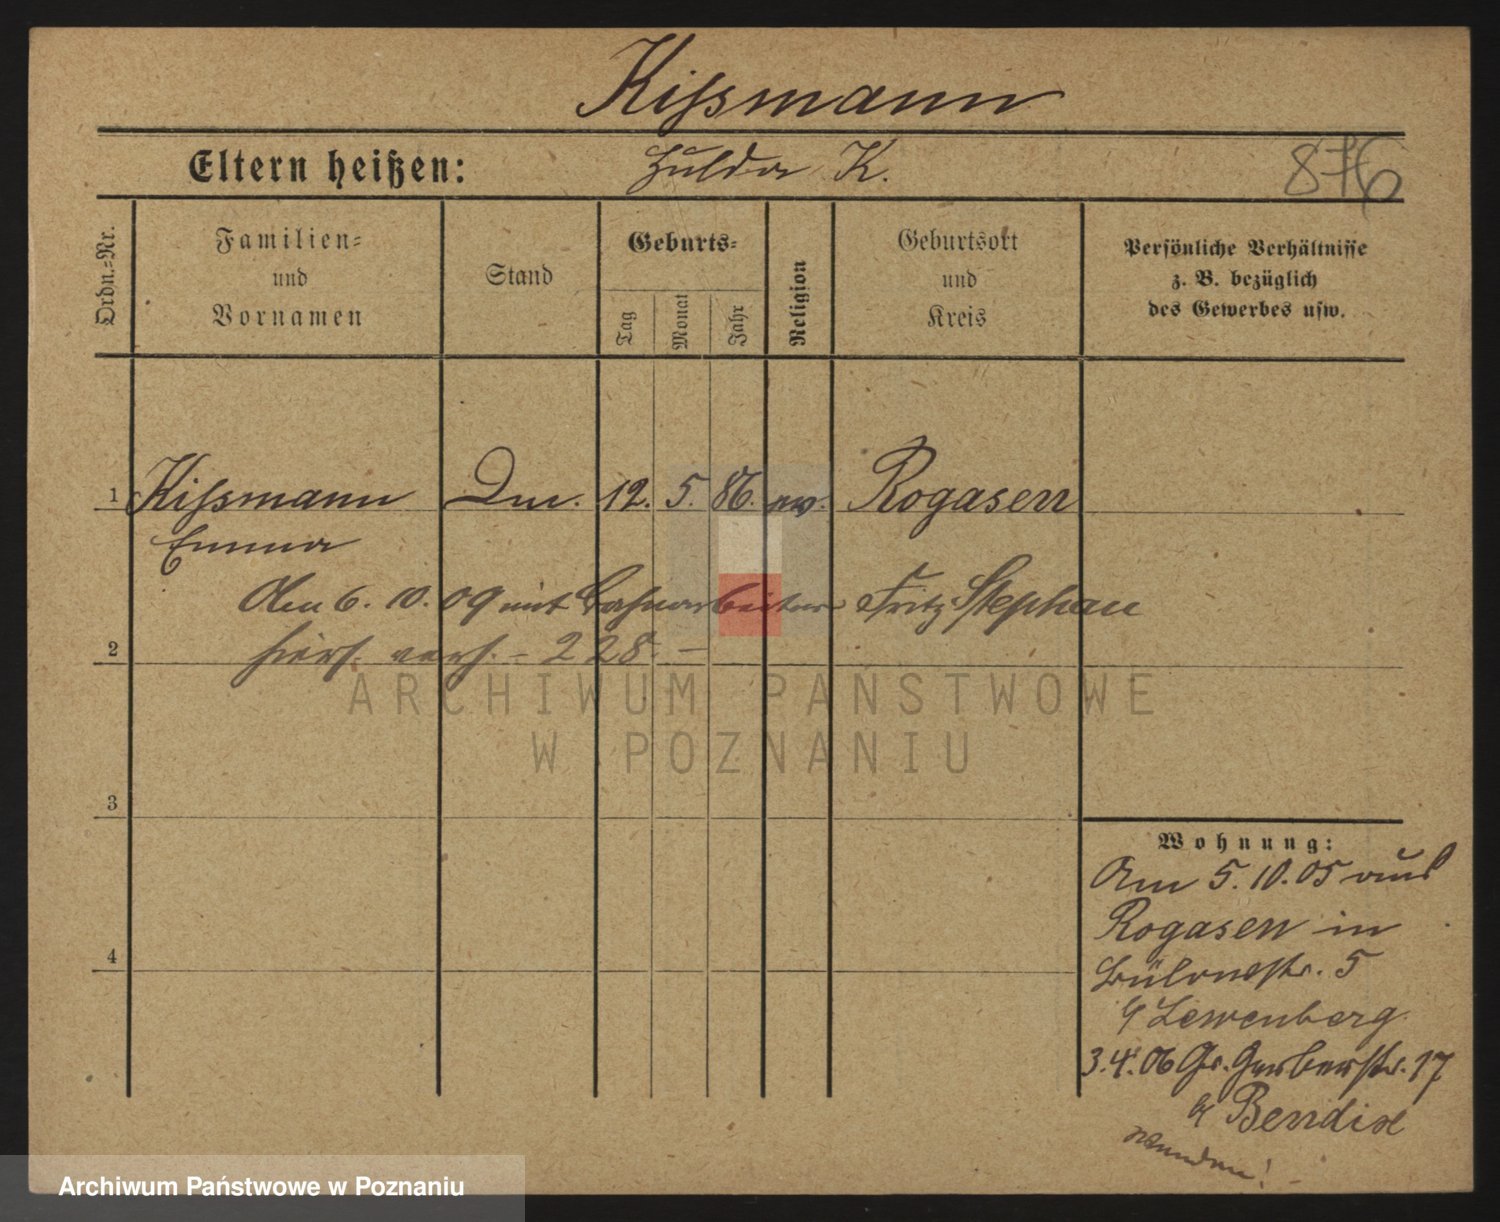 Kißmann
Eltern heißen: Hulda K.
876
Ordn.-Nr.
Familien- und Vornamen
Stand
Geburts-
Tag
Monat
Jahr
Religion
Geburtsort und Kreis
Persönliche Verhältnisse
z. B. bezüglich
des Gewerbes usw.
1 Kißmann 12. 5. 86. ev. Rogasen
Emma
Am 6. 10. 09 mit Bahnarbeiter Fritz Stephan
2 hiers. verh. - 228. -
3
4
Wohnung:
Am 5. 10. 05 aus
Rogasen in
Bülowstr. 5
b/ Lewenberg
3. 4. 06 Gr. Gerberstr. 17
b/ Bendix
wenden!
ARCHIWUM PAŃSTWOWE
W POZNANIU
Archiwum Państwowe w Poznaniu